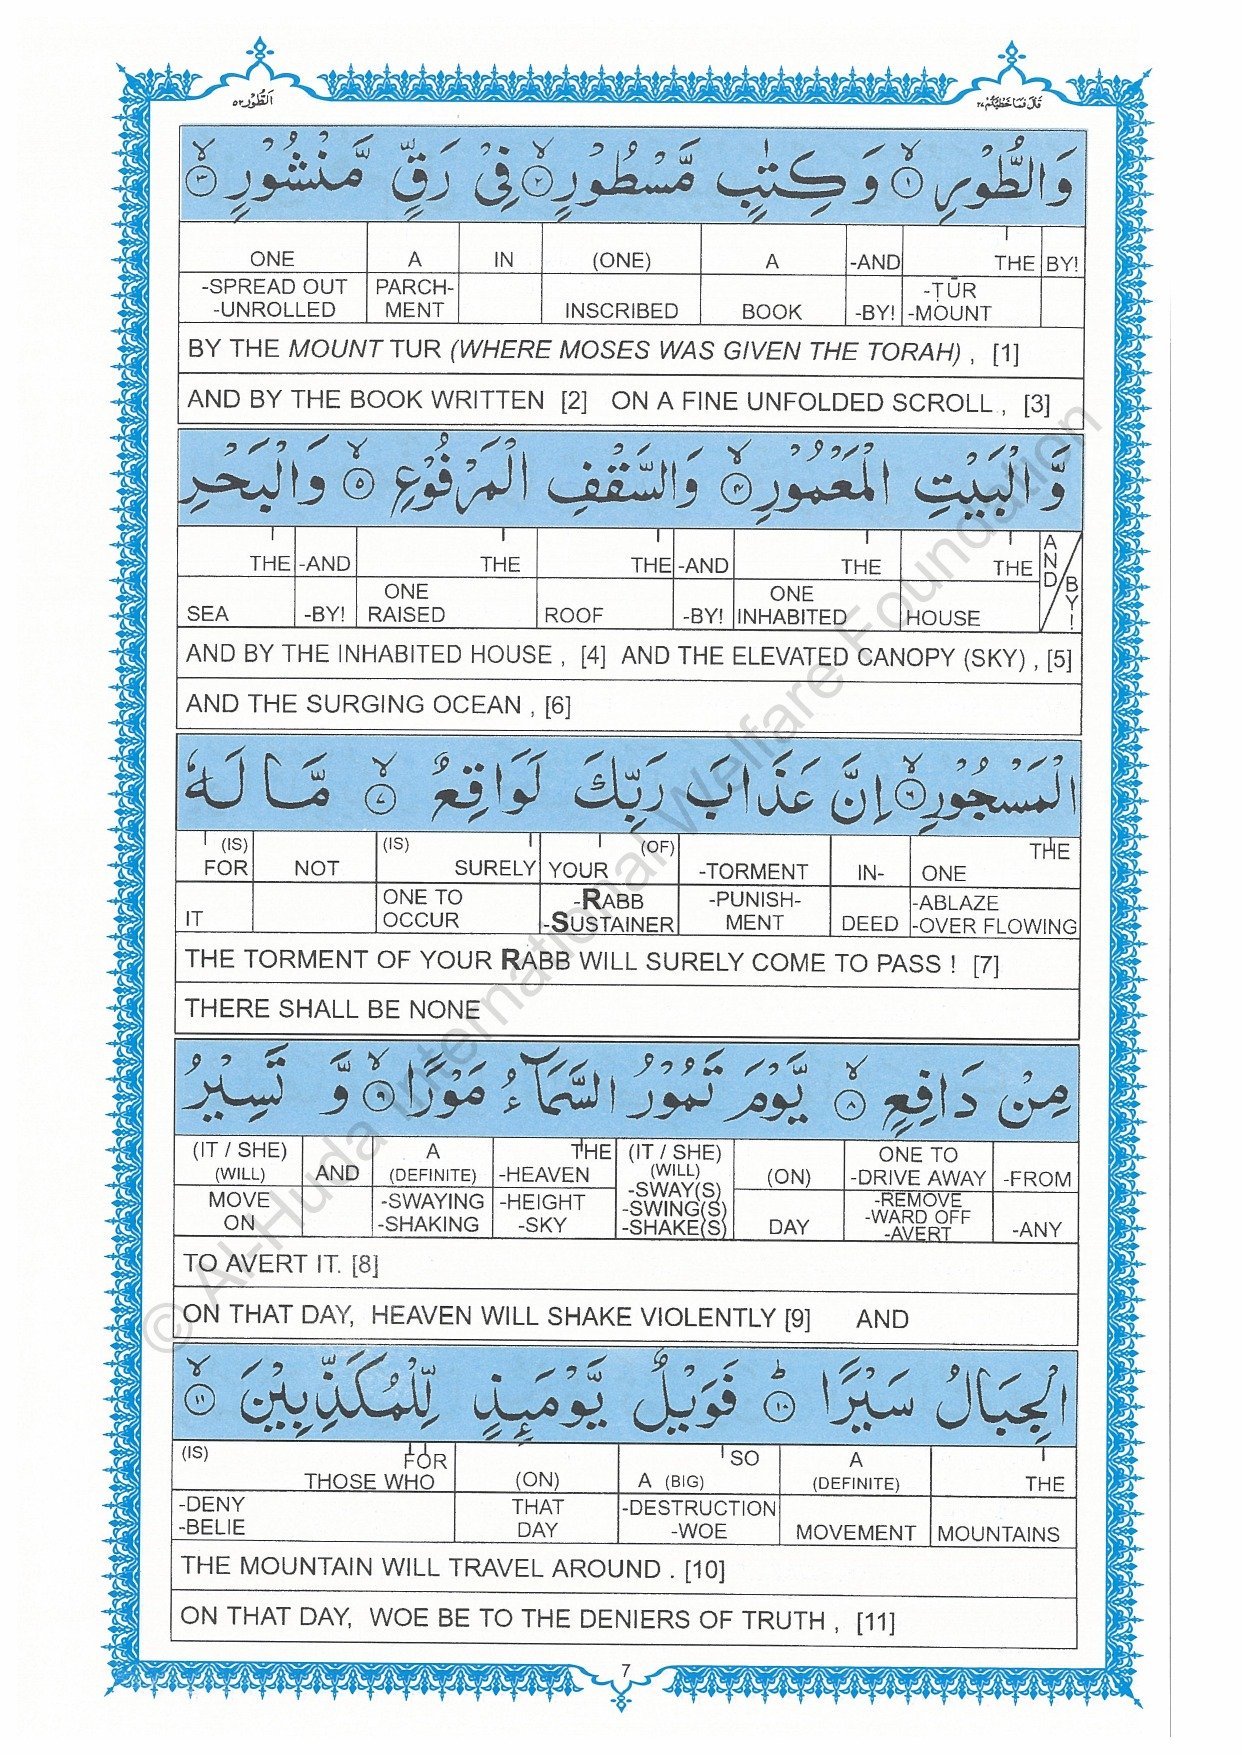 اَلطُّوْر ٥٢ قَالَ فَمَا خَطْبُكُمْ ٢٧
وَالطُّوْرِ ۙ﴿١﴾ وَكِتٰبٍ مَّسْطُوْرٍ ۙ﴿٢﴾ فِيْ رَقٍّ مَّنْشُوْرٍ ۙ﴿٣﴾
ONE A IN (ONE) A -AND THE BY!
-SPREAD OUT PARCH- -ṬŪR
-UNROLLED MENT INSCRIBED BOOK -BY! -MOUNT
BY THE MOUNT TUR (WHERE MOSES WAS GIVEN THE TORAH) , [1]
AND BY THE BOOK WRITTEN [2] ON A FINE UNFOLDED SCROLL , [3]
وَّالْبَيْتِ الْمَعْمُوْرِ ۙ﴿٤﴾ وَالسَّقْفِ الْمَرْفُوْعِ ۙ﴿٥﴾ وَالْبَحْرِ
THE -AND THE THE -AND THE THE AND
ONE ONE BY!
SEA -BY! RAISED ROOF -BY! INHABITED HOUSE
AND BY THE INHABITED HOUSE , [4] AND THE ELEVATED CANOPY (SKY) , [5]
AND THE SURGING OCEAN , [6]
الْمَسْجُوْرِ ۙ﴿٦﴾ اِنَّ عَذَابَ رَبِّكَ لَوَاقِعٌ ۙ﴿٧﴾ مَّا لَهٗ
(IS) (IS) (OF) THE
FOR NOT SURELY YOUR -TORMENT IN- ONE
ONE TO -RABB -PUNISH- -ABLAZE
IT OCCUR -SUSTAINER MENT DEED -OVER FLOWING
THE TORMENT OF YOUR RABB WILL SURELY COME TO PASS ! [7]
THERE SHALL BE NONE
مِنْ دَافِعٍ ۙ﴿٨﴾ يَّوْمَ تَمُوْرُ السَّمَآءُ مَوْرًا ۙ﴿٩﴾ وَّ تَسِيْرُ
(IT / SHE) A THE (IT / SHE) ONE TO
(WILL) AND (DEFINITE) -HEAVEN (WILL) (ON) -DRIVE AWAY -FROM
MOVE -SWAYING -HEIGHT -SWAY(S) -REMOVE
-SWING(S) -WARD OFF
ON -SHAKING -SKY -SHAKE(S) DAY -AVERT -ANY
TO AVERT IT. [8]
ON THAT DAY, HEAVEN WILL SHAKE VIOLENTLY [9] AND
الْجِبَالُ سَيْرًا ؕ﴿١٠﴾ فَوَيْلٌ يَّوْمَئِذٍ لِّلْمُكَذِّبِيْنَ ۙ﴿١١﴾
(IS) FOR SO A
THOSE WHO (ON) A (BIG) (DEFINITE) THE
-DENY THAT -DESTRUCTION
-BELIE DAY -WOE MOVEMENT MOUNTAINS
THE MOUNTAIN WILL TRAVEL AROUND . [10]
ON THAT DAY, WOE BE TO THE DENIERS OF TRUTH , [11]
7
© Al-Huda International Welfare Foundation